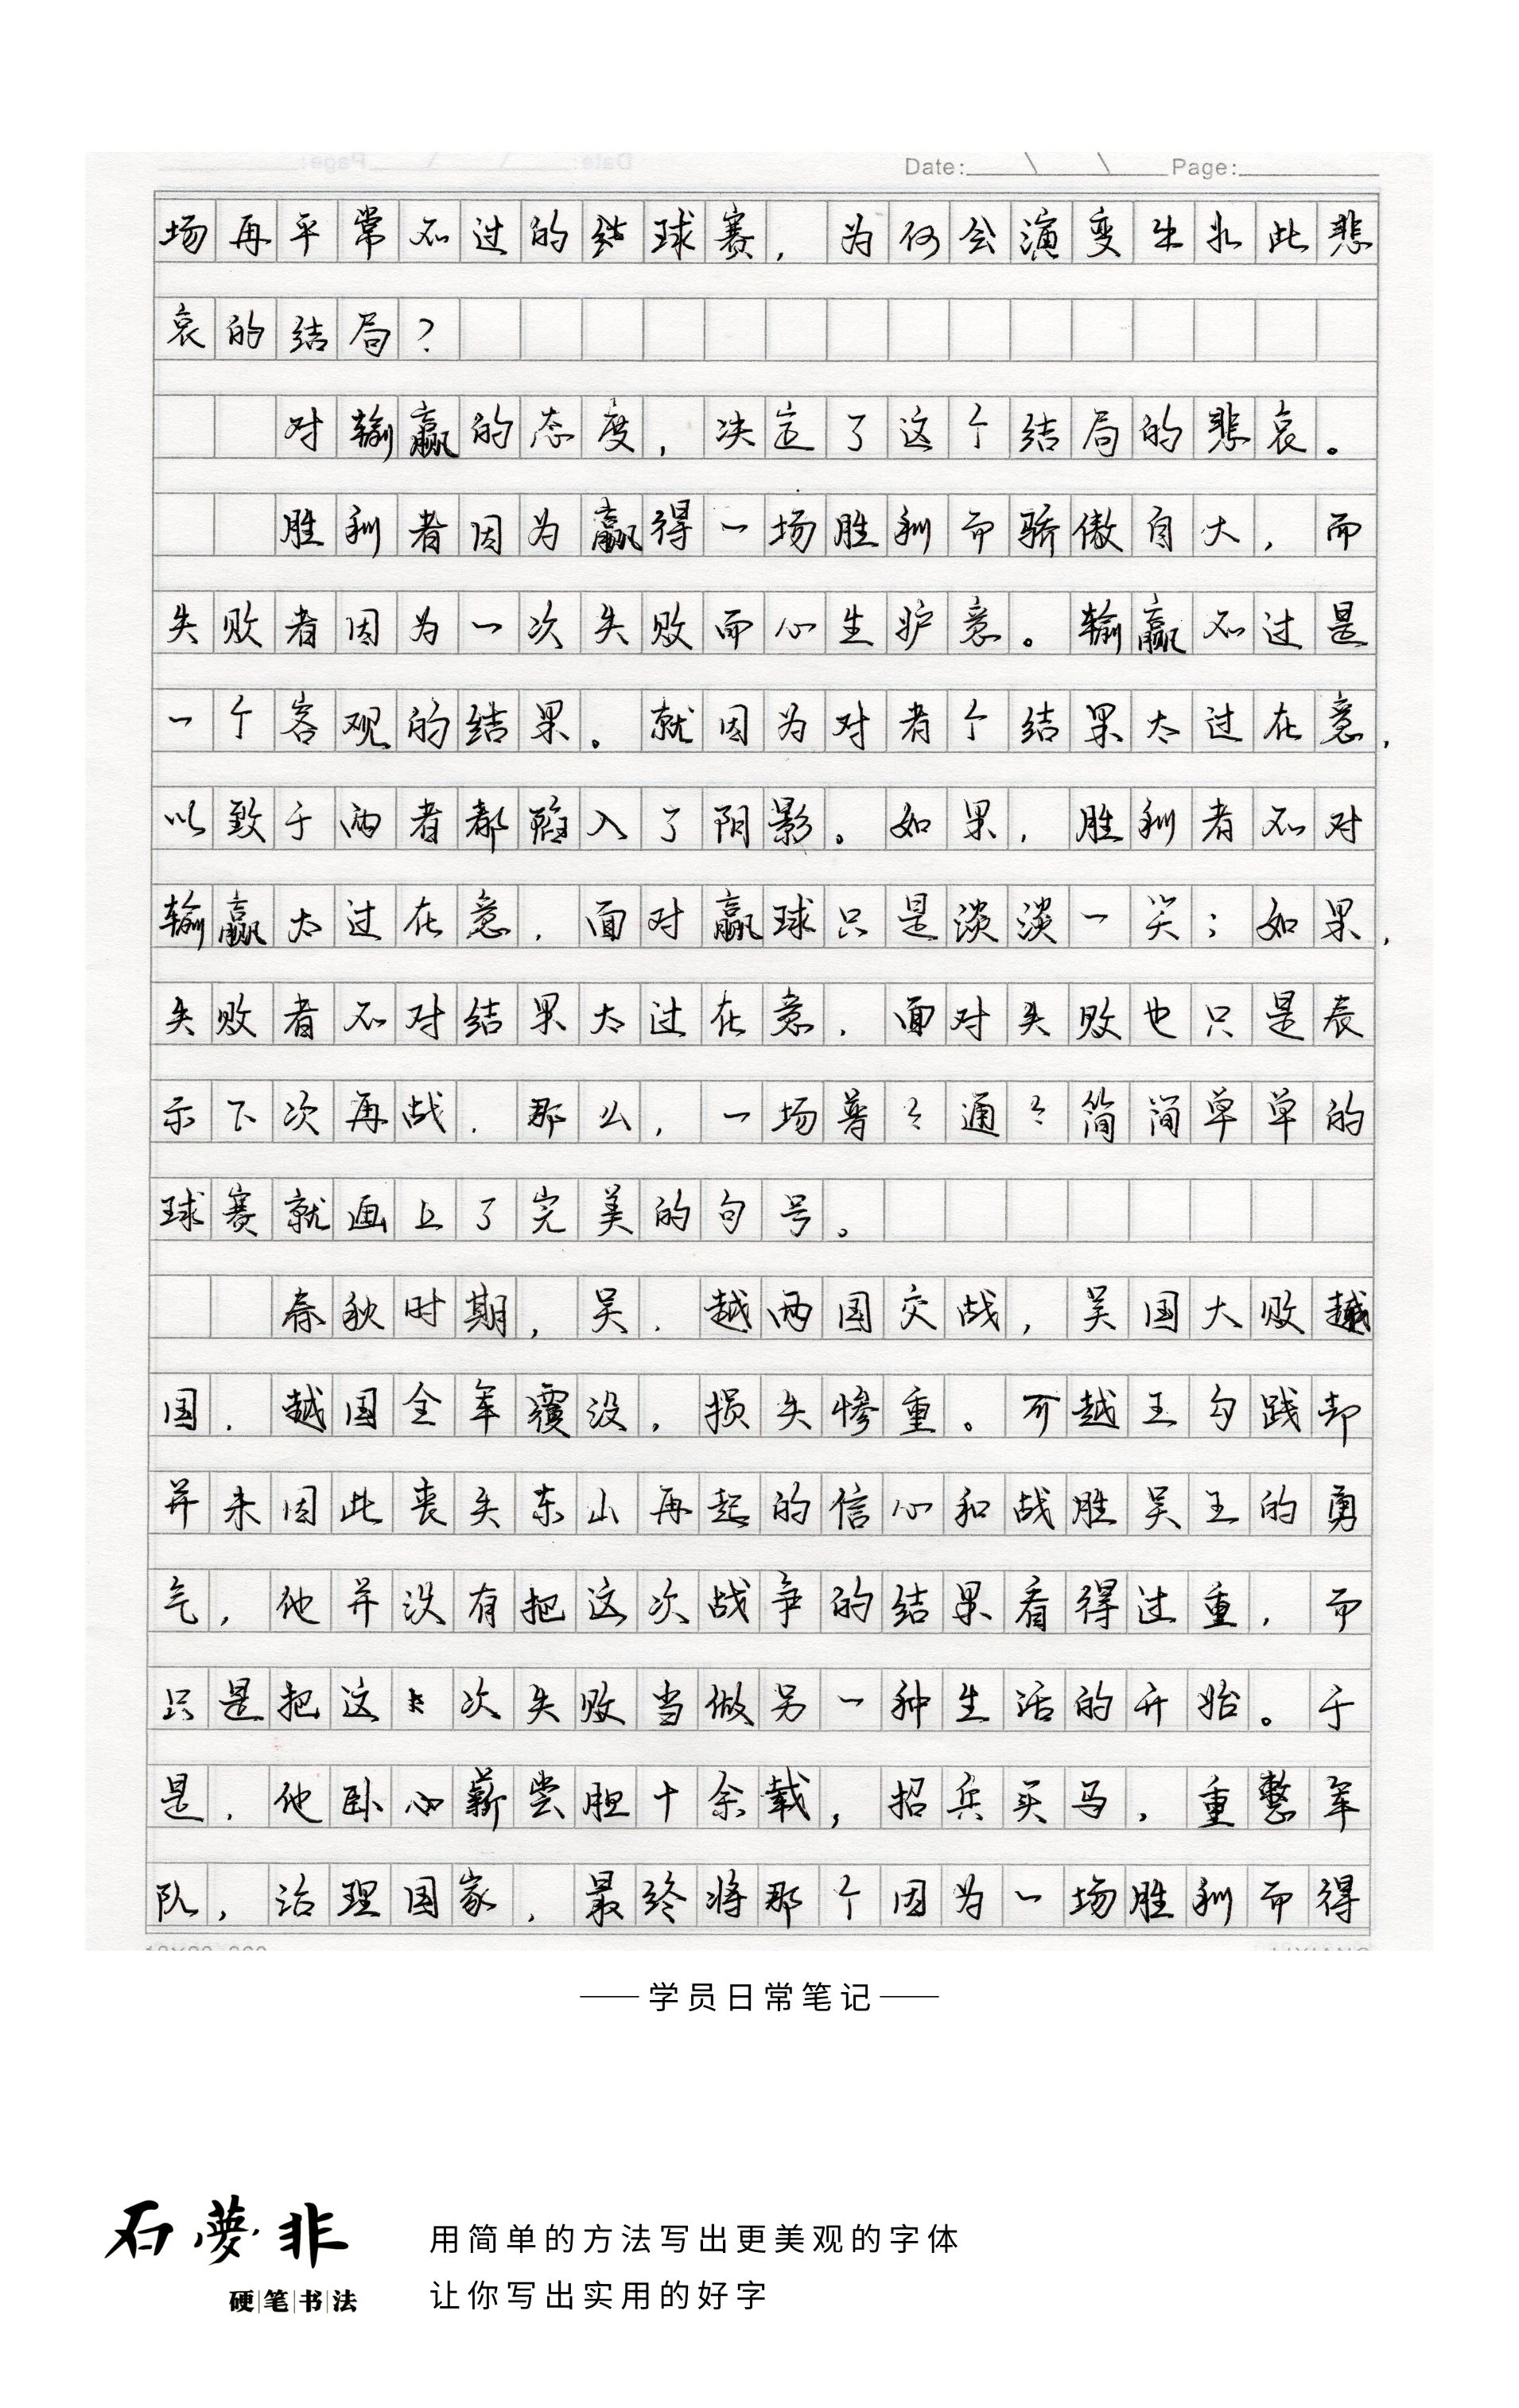 Date: \ \ Page:
场再平常不过的结球赛，为何会演变出如此悲
哀的结局？
对输赢的态度，决定了这个结局的悲哀。
胜利者因为赢得一场胜利而骄傲自大，而
失败者因为一次失败而心生妒意。输赢不过是
一个客观的结果。就因为对者个结果太过在意，
以致于两者都陷入了阴影。如果，胜利者不对
输赢太过在意，面对赢球只是淡淡一笑；如果，
失败者不对结果太过在意，面对失败也只是表
示下次再战，那么，一场普々通々简简单单的
球赛就画上了完美的句号。
春秋时期，吴、越两国交战，吴国大败越
国，越国全军覆没，损失惨重。可越王勾践却
并未因此丧失东山再起的信心和战胜吴王的勇
气，他并没有把这次战争的结果看得过重，而
只是把这次失败当做另一种生活的开始。于
是，他卧薪尝胆十余载，招兵买马，重整军
队，治理国家，最终将那个因为一场胜利而得
学员日常笔记
石夢非
硬笔书法
用简单的方法写出更美观的字体
让你写出实用的好字